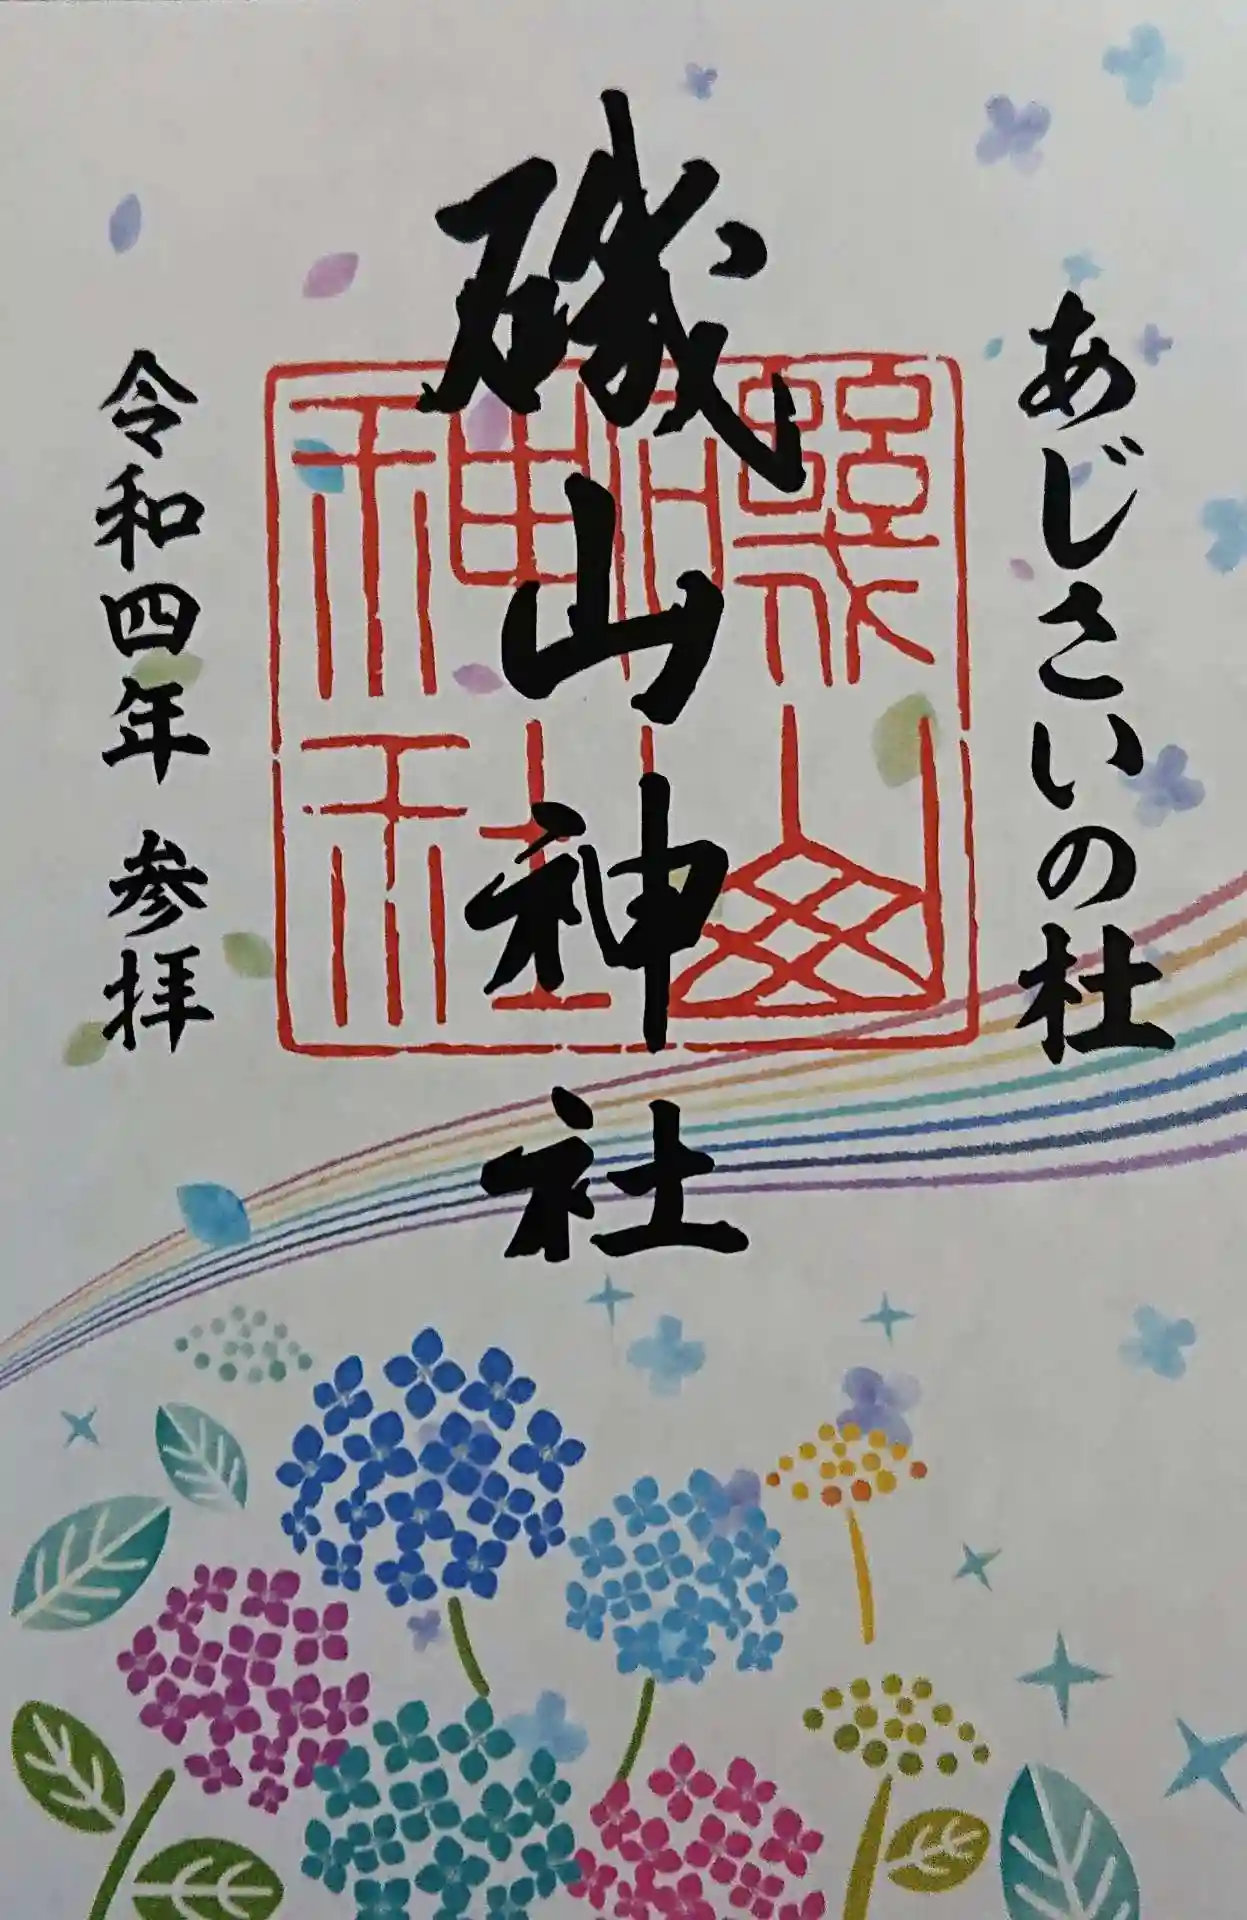 あじさいの杜
磯山神社
令和四年 参拝